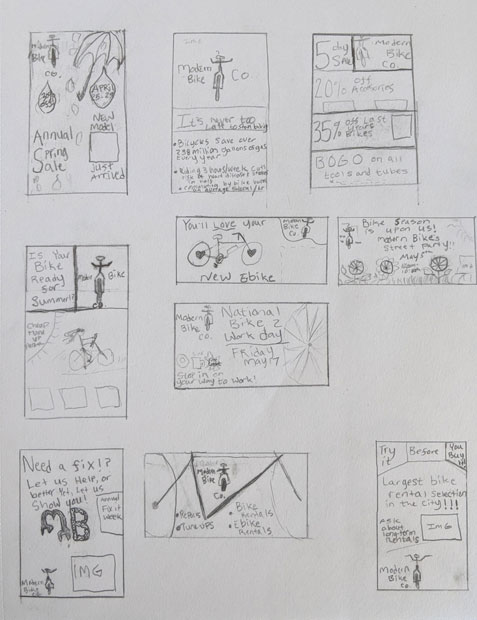 modern
Bike
Co.
APRIL
Annual
Spring
Sale
NEW
Model
Just
Arrived
Modern
Bike
Co.
It's never too
late to start biking
• Bicycles save over
238 million gallons of gas
Every year
5 day
Sale
Modern
Bike
Co.
20% off
Accessories
35% off Last
Bikes
BOGO on all
tools and tubes
Is Your
Bike
Ready
for
Summer!?
Modern
Bike
You'll Love your
New Ebike
Modern
Bike
Co.
Bike Season
is upon us!
Modern Bike's
Street party!!
May 5
Modern
Bike
Co.
National
Bike 2
Work day
Friday
May 17
Stop in on
your way to work!
Need a fix!?
Let us Help, or
better Yet, let us
Show you!
Annual
Fix it
Week
MB
IMG
Modern
Bike
Co.
Modern
Bike
Co.
• Repairs
• Tune ups
• Bike
Rentals
• Ebike
Rentals
Try
it
Before
You
Buy
it!
Largest bike
rental selection
in the city!!!
Ask
about
long-term
Rentals
IMG
Modern
Bike
Co.